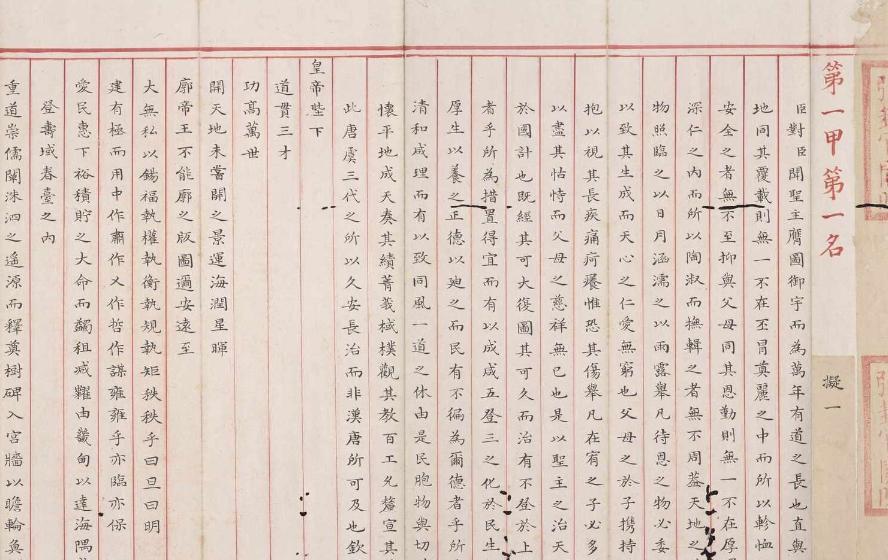 第一甲第一名
擬一
臣對臣聞聖主膺圖御宇而為萬年有道之長也直與
地同其覆載則無一不在丕冐奠麗之中而所以軫恤
安全之者無不至抑與父母同其恩勤則無一不在厚
深仁之內而所以陶淑而撫輯之者無不周蓋天地之
物照臨之以日月涵濡之以雨露舉凡待恩之物必委
以致其生成而天心之仁愛無窮也父母之於子攜持
抱以視其長疾痛疴癢惟恐其傷舉凡在宥之子必多
以盡其怙恃而父母之慈祥無已也是以聖主之治天
於國計也既經其可大復圖其可久而治有不登於上
者乎所為措置得宜而有以成咸五登三之化於民生
厚生以養之正德以廸之而民有不徧為爾德者乎所
清和咸理而有以致同風一道之休由是民胞物與切
懷平地成天奏其績菁莪棫樸觀其教百工允釐宣其
此唐虞三代之所以久安長治而非漢唐所可及也欽
皇帝陛下
道貫三才
功高萬世
開天地未嘗開之景運海潤星暉
廓帝王不能廓之版圖邇安遠至
大無私以錫福執權執衡執規執矩秩秩乎曰旦曰明
建有極而用中作肅作乂作哲作謀雍雍乎亦臨亦保
愛民惠下裕積貯之大命而蠲租減糶由畿甸以遠海隅
登壽域春臺之內
重道崇儒闡洙泗之遙源而釋奠樹碑入宮牆以瞻輪奐